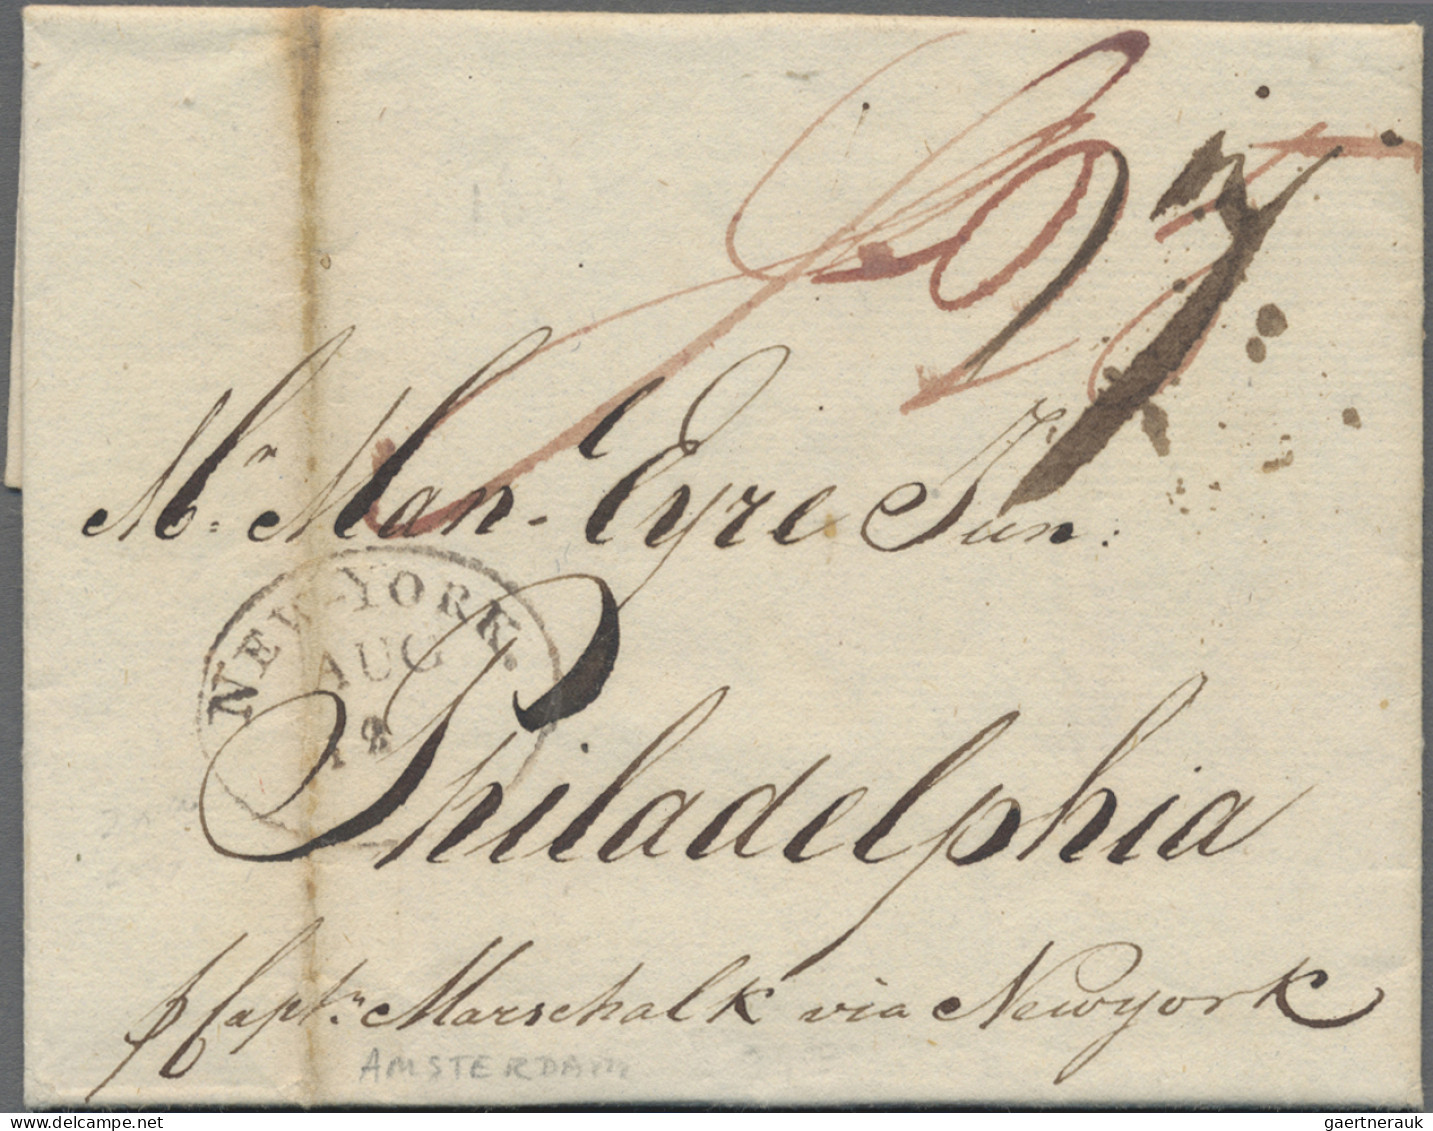 Mr. Man. Eyre Jun:
NEW-YORK.
AUG
18
Philadelphia
p Captn. Marschalk via Newyork
AMSTERDAM
gaertnerauk